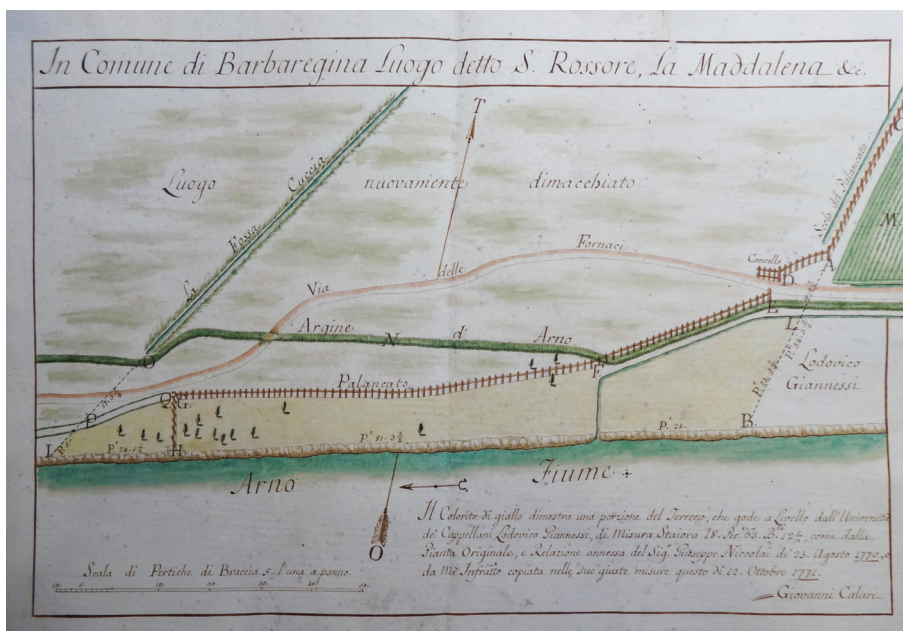 In Comune di Barbaregina Luogo detto S. Rossore, La Maddalena &c.
T
Luogo nuovamente dimacchiato
La Fossa Cuccia
Scolo del Palancato
C
M
Via delle Fornaci
Cancello
D
A
E
Argine N d' Arno
O
L
F
Lodovico
Giannessi
Palancato
Q G
P
B
I
H
P. 21.
Arno Fiume
O
Il Colorito di giallo dimostra una porzione del Terreno, che gode a Livello dall'Università
de' Cappellani Lodovico Giannessi, di Misura Staiora 18. Per. 63. B. 12½ come dalla
Pianta Originale, e Relazione annessa del Sig. Giuseppe Niccolai de' 23. Agosto
da Mè Infratto copiata nelle sue giuste misure questo dì 12. Ottobre 1771.
Giovanni Caluri
Scala di Pertiche di Braccia 5. l'una a panno.
10. 0 10. 20. 30. 40. 50.